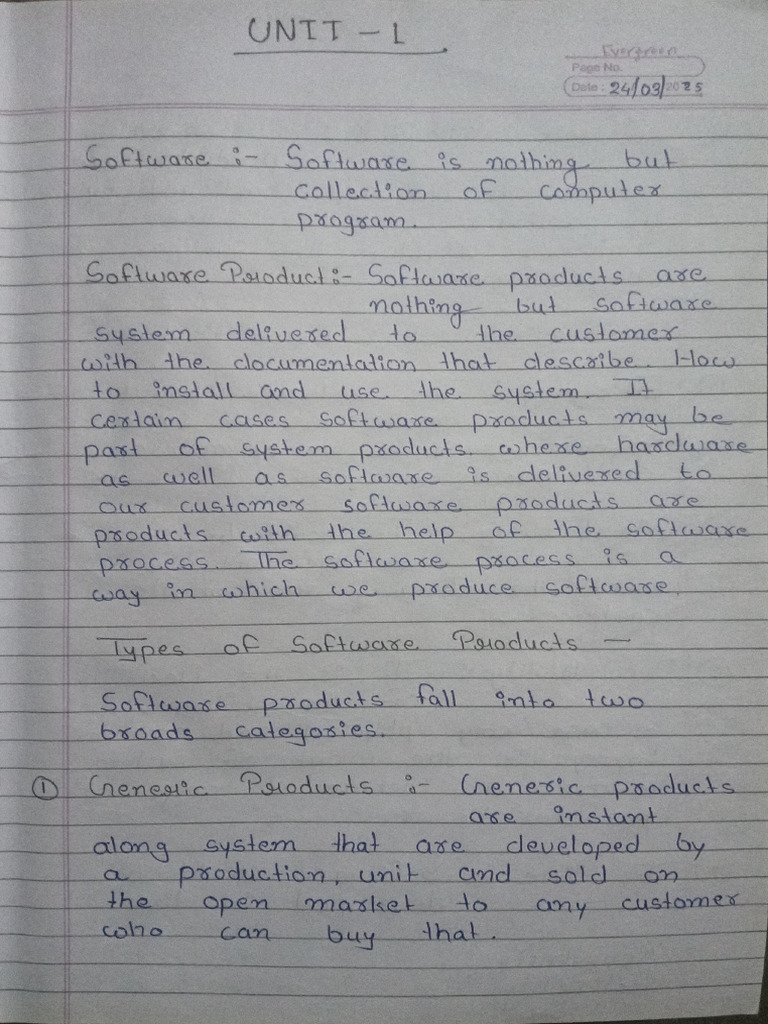 UNIT - 1
Evergreen
Page No.
Date : 24/09/2025
Software :- Software is nothing but
collection of computer
program.
Software Product :- Software products are
nothing but software
system delivered to the customer
with the documentation that describe How
to install and use the system. It
certain cases software products may be
part of system products where hardware
as well as software is delivered to
our customer software products are
products with the help of the software
process. The software process is a
way in which we produce software.
Types of Software Products —
Software products fall into two
broads categories.
① Generic Products :- Generic products
are instant
along system that are developed by
a production, unit and sold on
the open market to any customer
who can buy that.